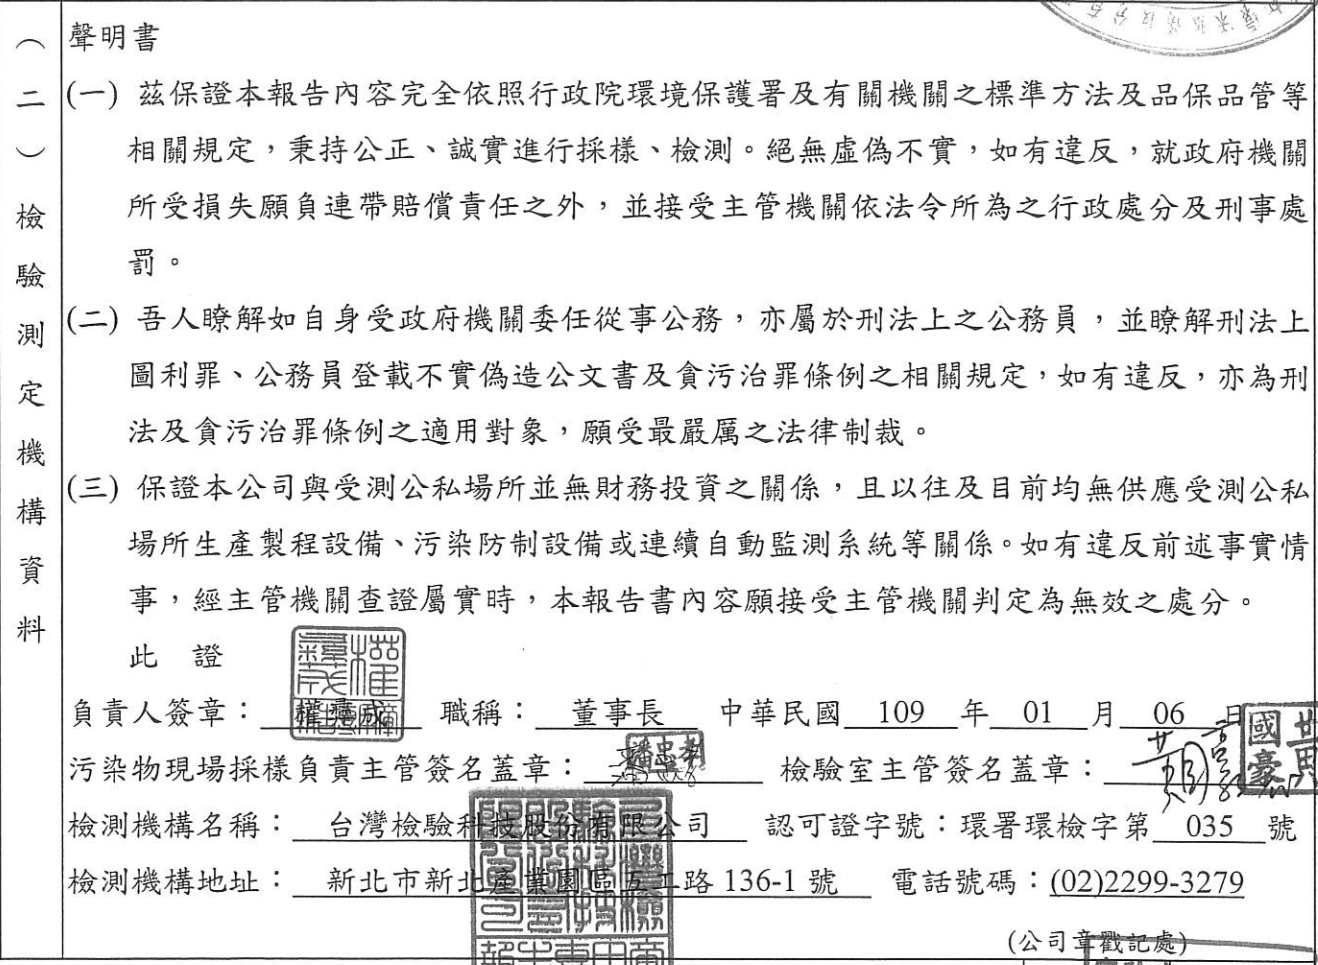 (二)檢驗測定機構資料
聲明書
(一) 茲保證本報告內容完全依照行政院環境保護署及有關機關之標準方法及品保品管等
相關規定，秉持公正、誠實進行採樣、檢測。絕無虛偽不實，如有違反，就政府機關
所受損失願負連帶賠償責任之外，並接受主管機關依法令所為之行政處分及刑事處
罰。
(二) 吾人瞭解如自身受政府機關委任從事公務，亦屬於刑法上之公務員，並瞭解刑法上
圖利罪、公務員登載不實偽造公文書及貪污治罪條例之相關規定，如有違反，亦為刑
法及貪污治罪條例之適用對象，願受最嚴厲之法律制裁。
(三) 保證本公司與受測公私場所並無財務投資之關係，且以往及目前均無供應受測公私
場所生產製程設備、污染防制設備或連續自動監測系統等關係。如有違反前述事實情
事，經主管機關查證屬實時，本報告書內容願接受主管機關判定為無效之處分。
此 證
負責人簽章： 職稱： 董事長 中華民國 109 年 01 月 06 日
污染物現場採樣負責主管簽名蓋章： 檢驗室主管簽名蓋章： 國豪
檢測機構名稱： 台灣檢驗科技股份有限公司 認可證字號：環署環檢字第 035 號
檢測機構地址： 新北市新北產業園區五工路 136-1 號 電話號碼：(02)2299-3279
(公司章戳記處)